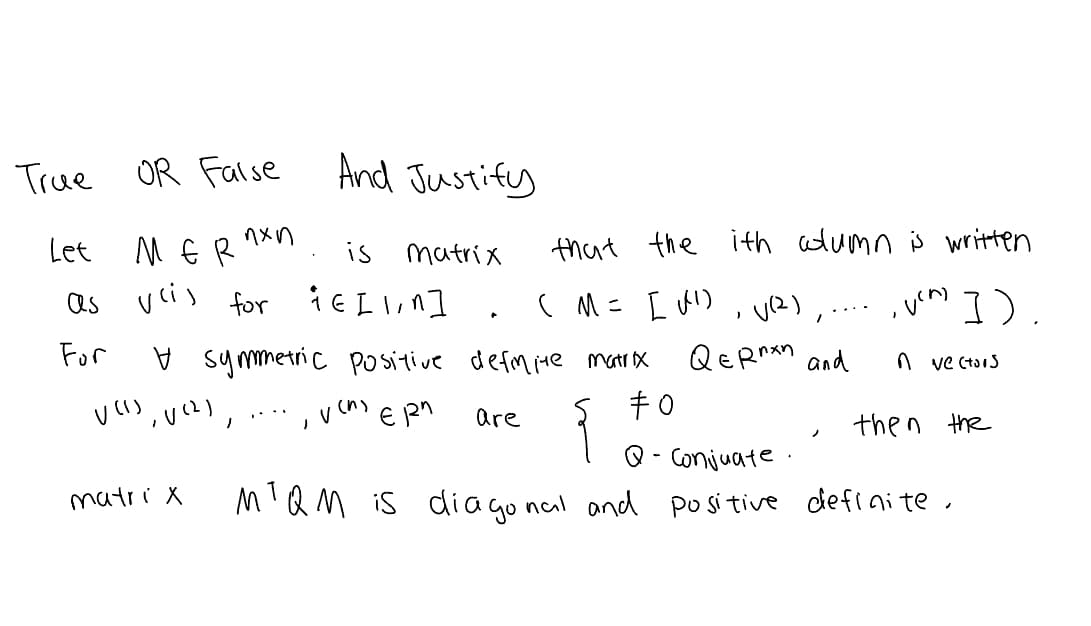 True OR False And Justify
Let M ∈ R^{n×n}. is matrix that the ith column is written
as v^{(i)} for i ∈ [1, n]. ( M = [ v^{(1)}, v^{(2)}, ...., v^{(n)} ] ).
For ∀ symmetric positive definite matrix Q ∈ R^{n×n} and n vectors
v^{(1)}, v^{(2)}, ...., v^{(n)} ∈ R^n are { ≠ 0
Q - Conjuate. , then the
matrix M^T Q M is diagonal and positive definite.